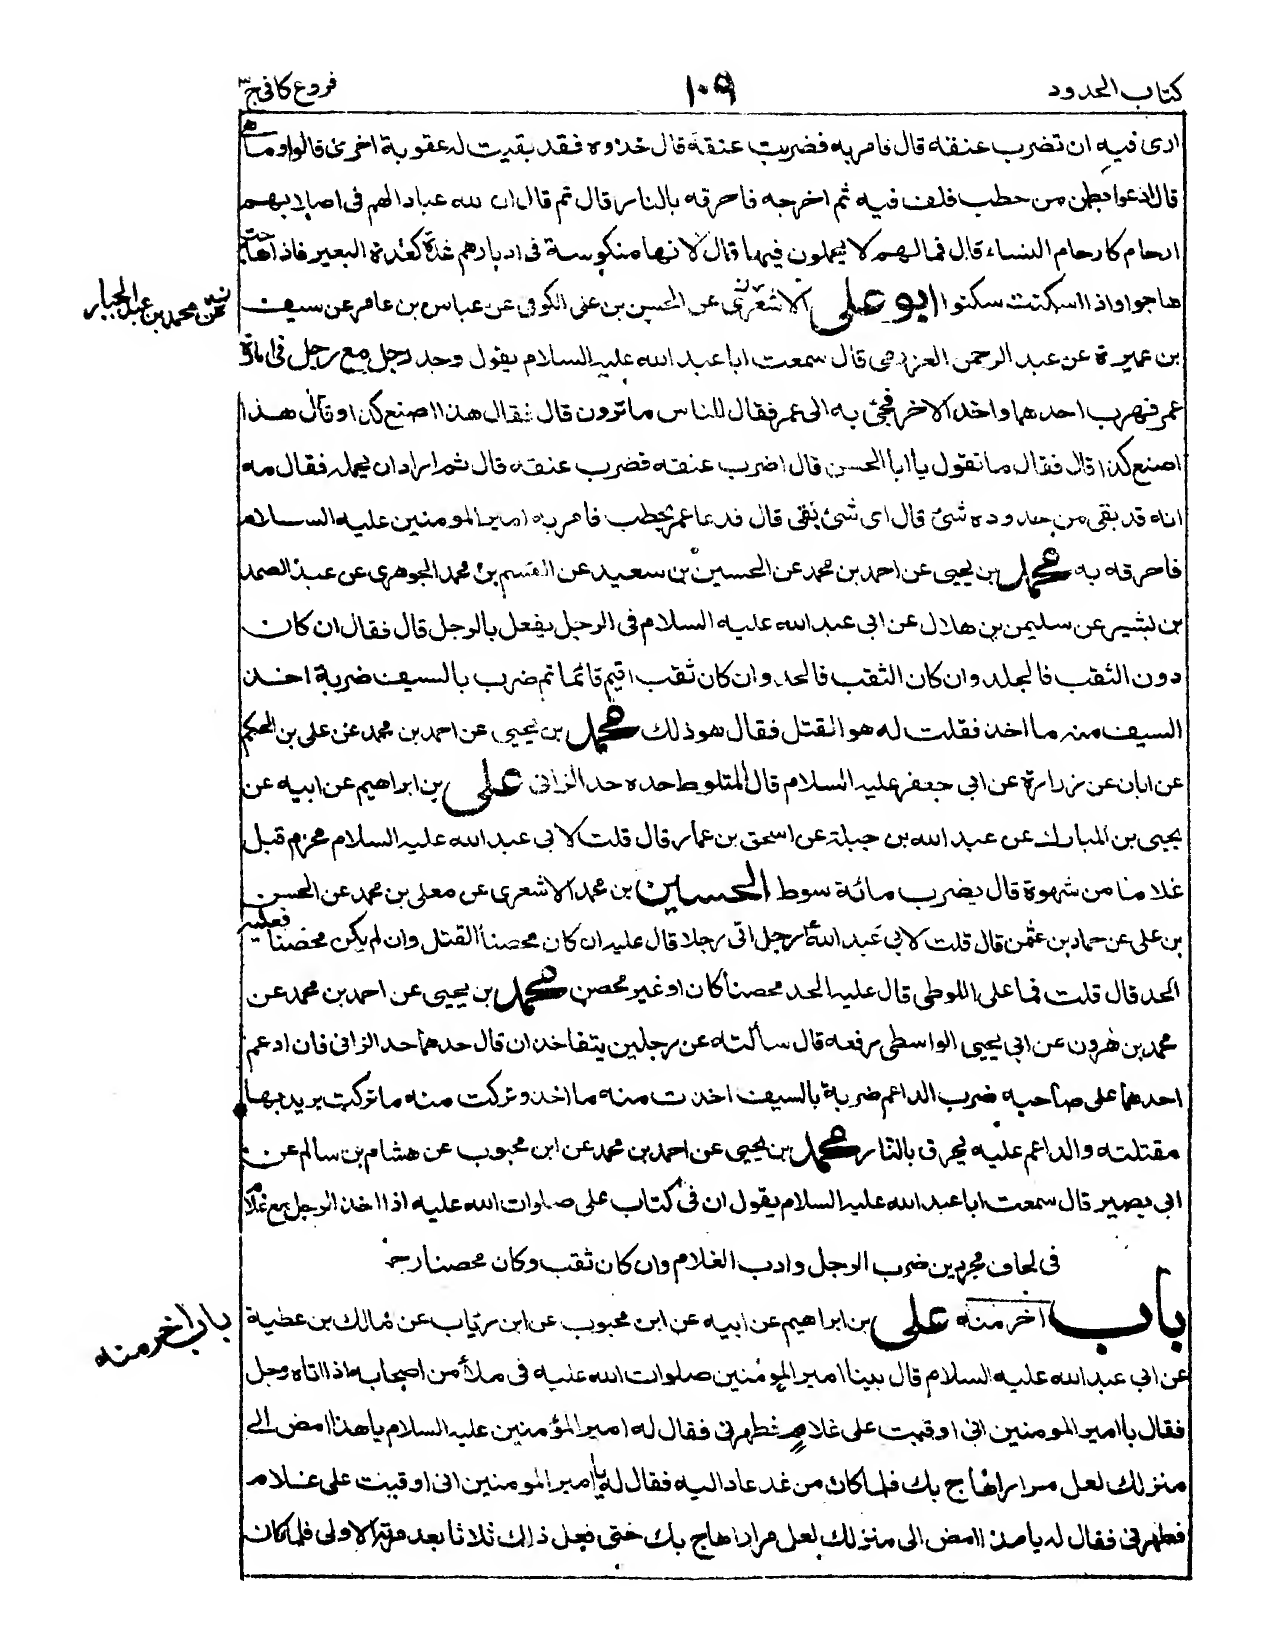 كتاب الحدود
١٠٩
فروع كافى ج ٣
ارى فيه ان تضرب عنقه قال فامر به فضربت عنقه قال خذوه فقد بقيت له عقوبة اخرى قالوا وما هى
قال ادعوا بطن من حطب فلف فيه ثم اخرجه فاحرقه بالنار قال ثم قال ان لله عبادا لهم فى اصلابهم
ارحام كارحام النساء قال فما لهم لا يحملون فيها قال لانها منكوسة فى ادبارهم غدة كغدة البعير فاذا هاجت
هاجوا واذا سكنت سكنوا ابو على الاشعرى عن الحسن بن على الكوفى عن عباس بن عامر عن سيف
عن محمد بن عبد الجبار
بن عميرة عن عبد الرحمن العزرمى قال سمعت ابا عبد الله عليه السلام يقول وجد رجل مع رجل فى امارة
عمر فهرب احدهما واخذ الاخر فجئ به الى عمر فقال للناس ما ترون قال فقال هذا اصنع كذا وقال هذا
اصنع كذا قال فقال ما تقول يا ابا الحسن قال اضرب عنقه فضرب عنقه قال ثم اراد ان يحمله فقال مه
انه قد بقى من حدوده شئ قال اى شئ بقى قال فدعا عمر بحطب فامر به امير المومنين عليه السلام
فاحرقه به محمد بن يحيى عن احمد بن محمد عن الحسين بن سعيد عن القسم بن محمد الجوهرى عن عبد الصمد
بن بشير عن سليمن بن هلال عن ابى عبد الله عليه السلام فى الرجل يفعل بالرجل قال فقال ان كان
دون الثقب فالجلد وان كان الثقب فالحد وان كان ثقب اقيم قائما ثم ضرب بالسيف ضربة اخذ
السيف منه ما اخذ فقلت له هو القتل فقال هو ذلك محمد بن يحيى عن احمد بن محمد عن على بن الحكم
عن ابان عن زرارة عن ابى جعفر عليه السلام قال المتلوط حده حد الزانى على بن ابراهيم عن ابيه عن
يحيى بن المبارك عن عبد الله بن جبلة عن اسحق بن عمار قال قلت لابى عبد الله عليه السلام محرم قبل
غلاما من شهوة قال يضرب مائة سوط الحسين بن محمد الاشعرى عن معلى بن محمد عن الحسن
بن على عن حماد بن عثمن قال قلت لابى عبد الله ع رجل اتى رجلا قال عليه ان كان محصنا القتل وان لم يكن محصنا فعليه
الحد قال قلت فما على اللوطى قال عليه الحد محصنا كان او غير محصن محمد بن يحيى عن احمد بن محمد عن
محمد بن هرون عن ابى يحيى الواسطى رفعه قال سألته عن رجلين يتفاخذان قال حدهما حد الزانى فان ادعم
احدهما على صاحبه ضرب الداعم ضربة بالسيف اخذت منه ما اخذ وتركت منه ما تركت يريد بها
مقتلته والداعم عليه يحرق بالنار محمد بن يحيى عن احمد بن محمد عن ابن محبوب عن هشام بن سالم عن
ابى بصير قال سمعت ابا عبد الله عليه السلام يقول ان فى كتاب على صلوات الله عليه اذا اخذ الرجل مع غلام
فى لحاف مجردين ضرب الرجل وادب الغلام وان كان ثقب وكان محصنا رجم
باب اخر منه على بن ابراهيم عن ابيه عن ابن محبوب عن ابن رئاب عن مالك بن عطية
باب اخر منه
عن ابى عبد الله عليه السلام قال بينا امير المؤمنين صلوات الله عليه فى ملأ من اصحابه اذا اتاه رجل
فقال يا امير المومنين انى اوقبت على غلام فطهرنى فقال له امير المؤمنين عليه السلام يا هذا امض الى
منزلك لعل مرارا هاج بك فلما كان من غد عاد اليه فقال له يا امير المومنين انى اوقبت على غلام
فطهرنى فقال له يا هذا امض الى منزلك لعل مرارا هاج بك حتى فعل ذلك ثلاثا بعد مرته الاولى فلما كان